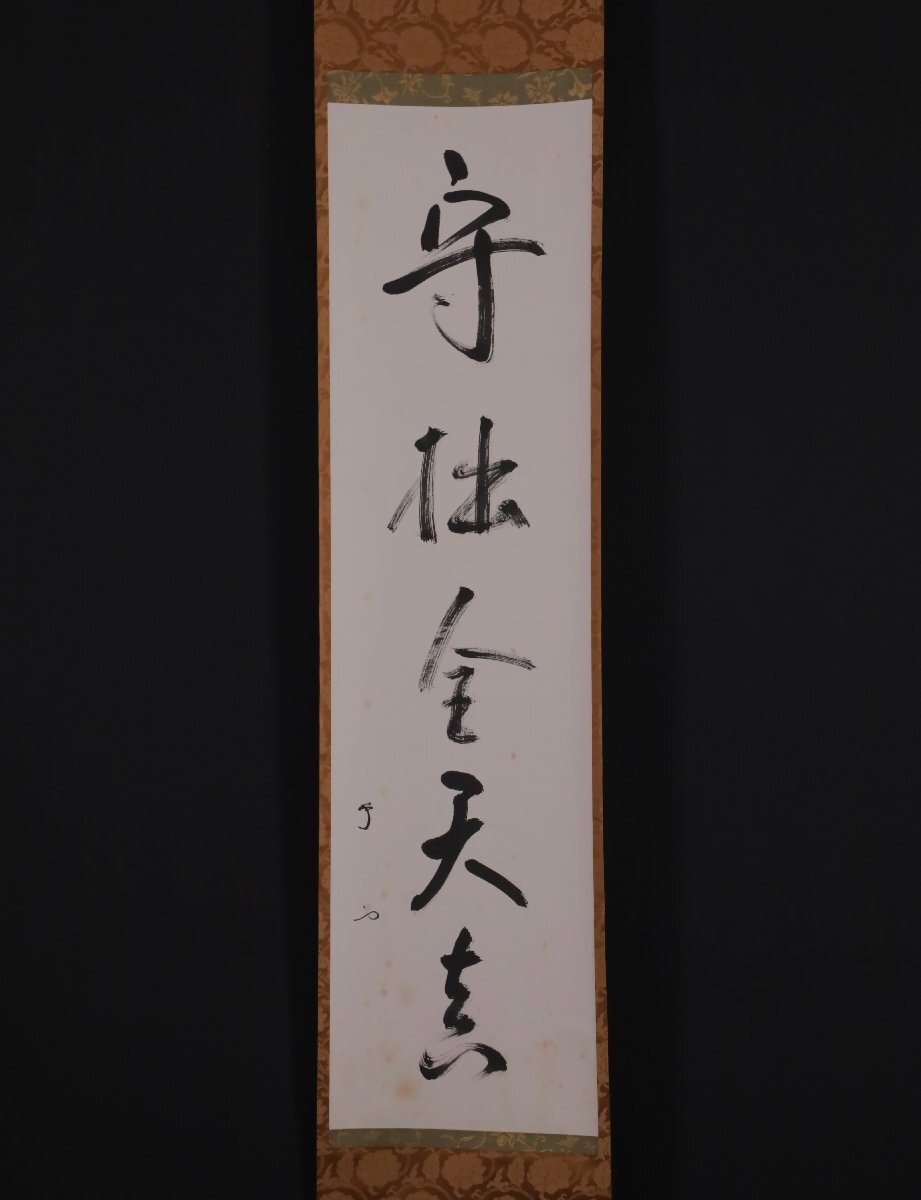 守拙全天真